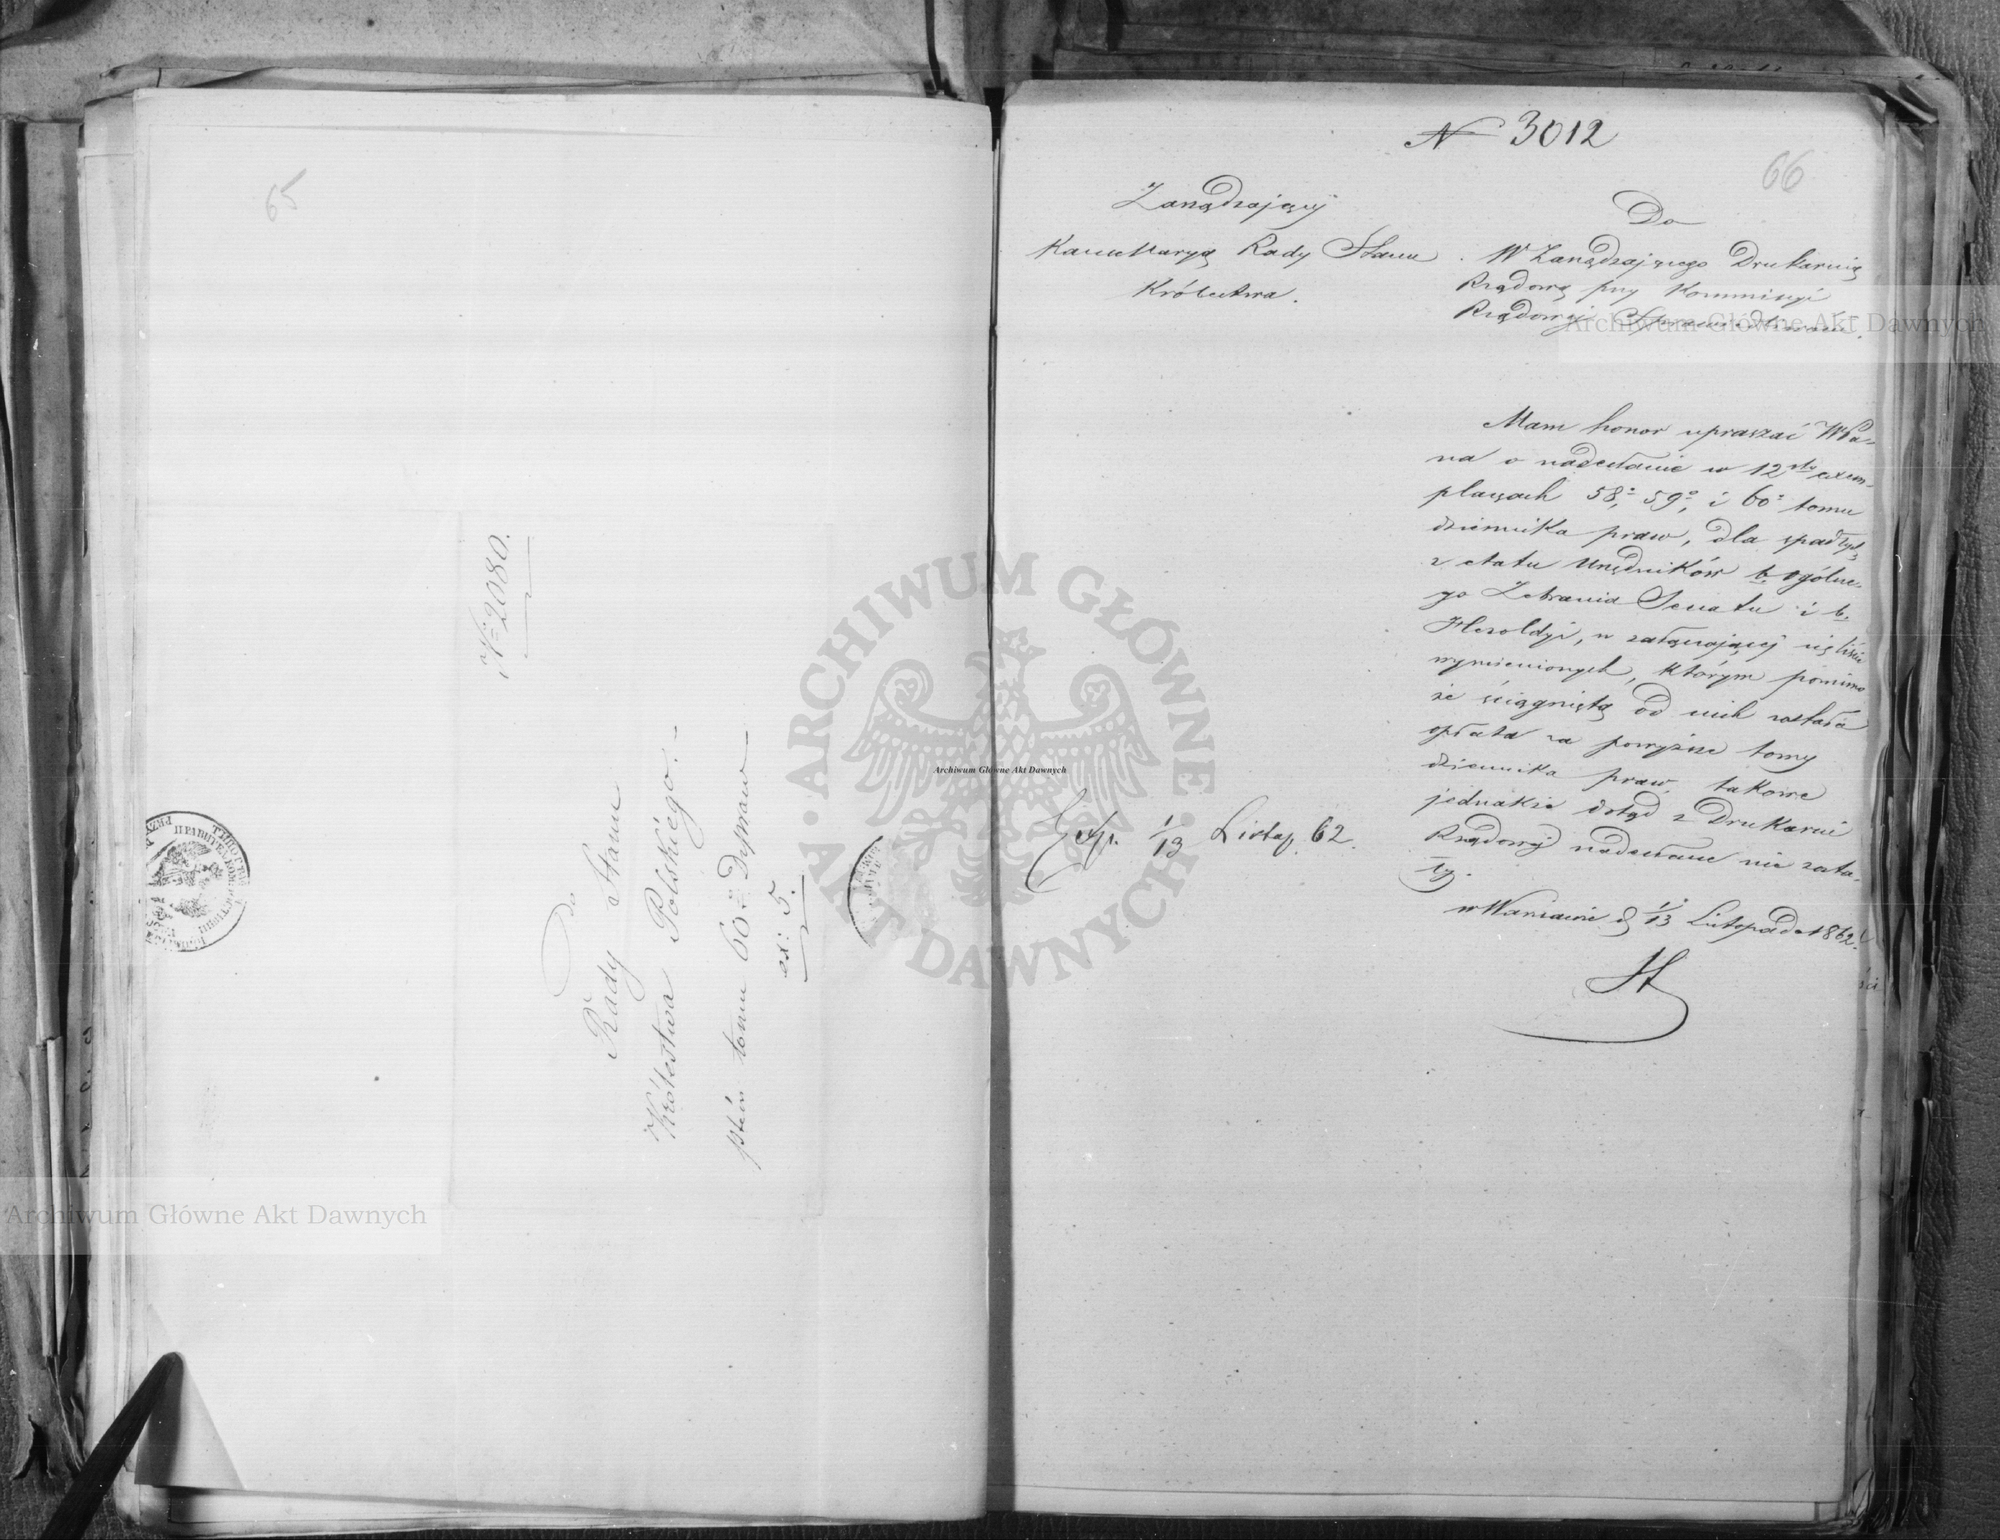 65
№ 2080.
do
Rady Stanu
Królestwa Polskiego.
tomu 60 Dzpraw
ex: 5.
N 3012
66
Zarządzający
Kancellaryą Rady Stanu
Królestwa.
Do
W Zarządzającego Drukarnią
Rządową przy Kommissyi
Rządowej Sprawiedliwości.
Mam honor upraszać WPa-
na o nadesłanie w 12stu exem-
plarzach 58°, 59°, i 60° tomu
dziennika praw, dla spadłych
z etatu Urzędników b. ogólne-
go Zebrania Senatu i b.
Heroldyi, w załączającej się liście
wymienionych, którym pomimo
że ściągniętą od nich została
opłata za powyższe tomy
dziennika praw, takowe
jednakże dotąd z Drukarni
Rządowej nadesłane nie zosta-
ły.
w Warszawie d 1/13 Listopada 1862.
Exp. 1/13 Listop. 62.
Archiwum Główne Akt Dawnych
Archiwum Główne Akt Dawnych
Archiwum Główne Akt Dawnych
ARCHIWUM GŁÓWNE AKT DAWNYCH